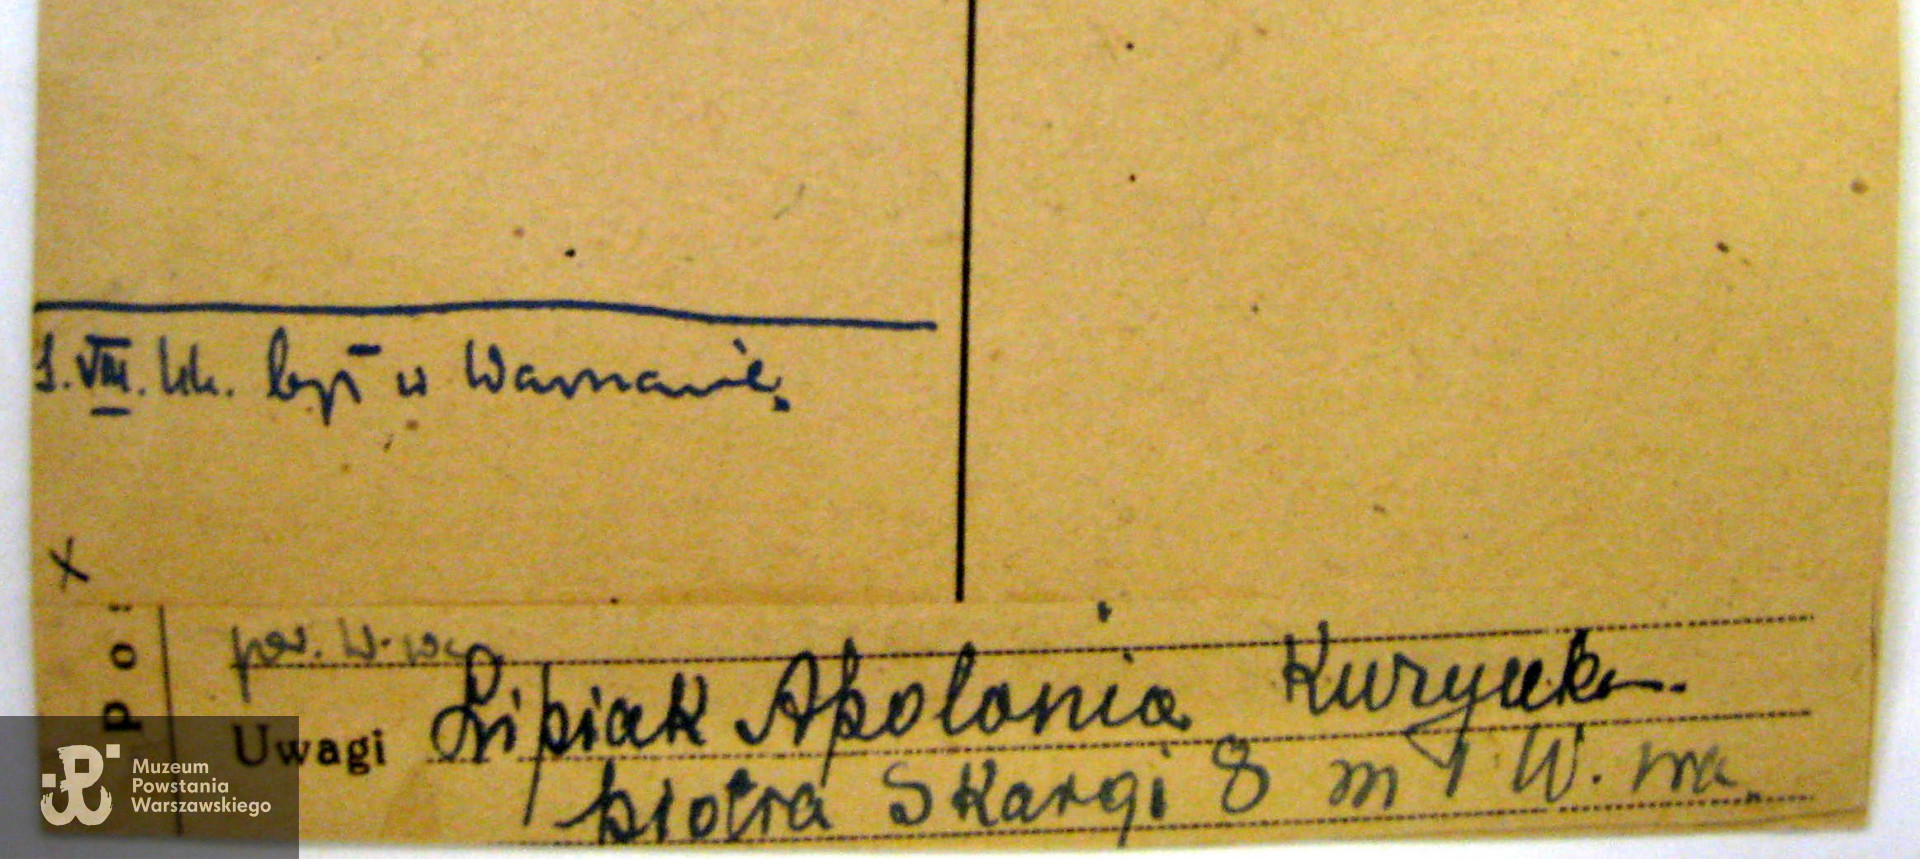 1. VIII. 44. był w Warszawie.
x
Po
pow. W-wa
Uwagi Lipiak Apolonia
Piotra Skargi 8 m 1 W. wa.
Muzeum
Powstania
Warszawskiego